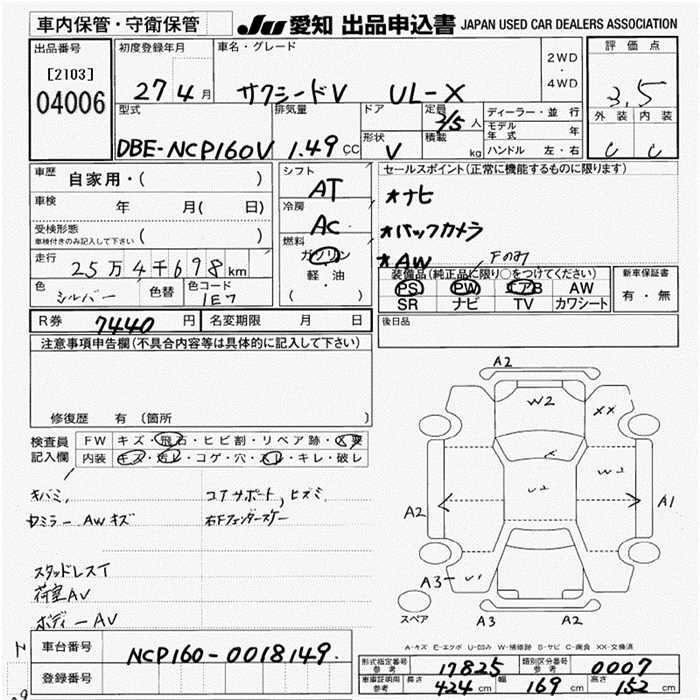 車内保管・守衛保管
JU 愛知 出品申込書 JAPAN USED CAR DEALERS ASSOCIATION
出品番号
[2103]
04006
初度登録年月
27 4 月
車名・グレード
サクシードV UL-X
2WD
・
4WD
評価点
3.5
外装 内装
C C
型式
DBE-NCP160V
排気量
1.49 CC
ドア
形状
V
定員
2/5 人
積載
kg
ディーラー・並行
モデル年式 年
ハンドル 左・右
車歴
自家用・( )
車検 年 月( 日)
受検形態
車検付きのみ記入して下さい ( )
走行
25万4千698 km
色
シルバー
色替
色コード
1E7
シフト
AT
冷房
AC
燃料
ガソリン
軽・油
( ・ )
セールスポイント(正常に機能するものに限ります)
*ナビ
*バックカメラ
*AW
Fのみ
装備品(純正品に限り○をつけてください)
PS PW エアB AW
SR ナビ TV カワシート
新車保証書
有・無
後日品
R券 7440 円 名変期限 月 日
注意事項申告欄(不具合内容等は具体的に記入して下さい)
修復歴 有(箇所 )
検査員
記入欄
FW キズ・飛石・ヒビ割・リペア跡・X要
内装 キズ・汚レ・コゲ・穴・スレ・キレ・破レ
キバミ、 コアサポート、ヒズミ
ドミラー AWキズ 右Fフェンダースケー
スタッドレスT
荷室AV
ボディーAV
A2
W2
XX
A2
A1
A3
A3
A2
スペア
A-キズ E-エクボ U-凹み W-補修跡 S-サビ C-腐食 XX-交換済
車台番号
NCP160-0018149
形式指定番号
参考
17825
類別区分番号
参考
0007
車庫証明用
参考
長さ 424 cm 幅 169 cm 高さ 152 cm